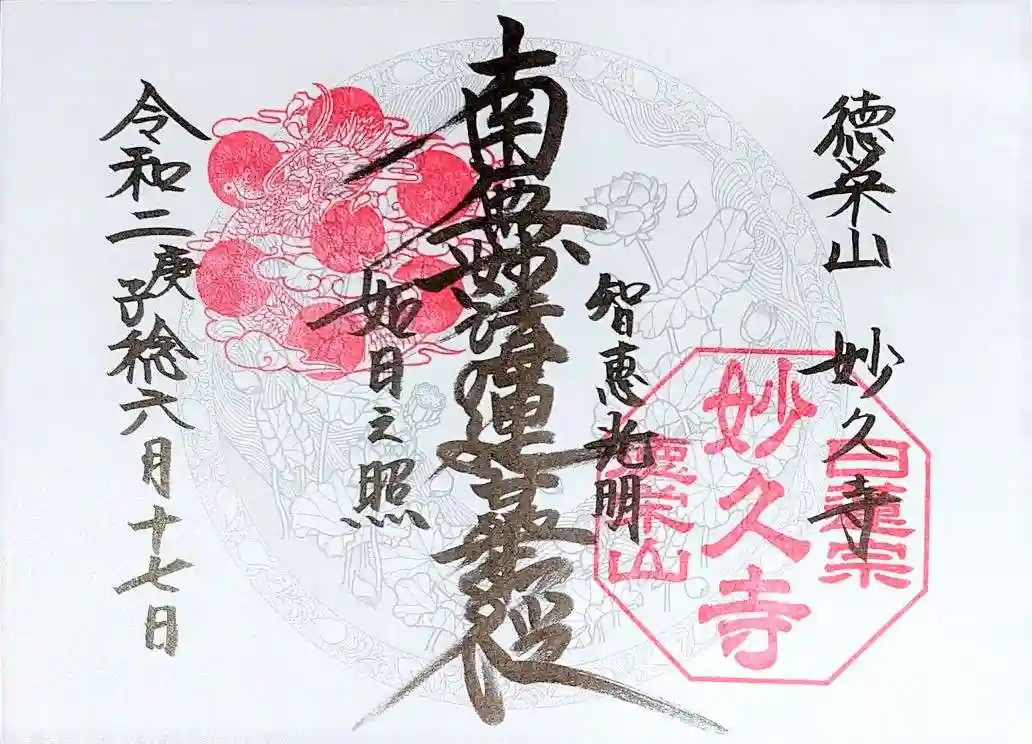 徳栄山　妙久寺
日蓮宗
妙久寺
徳栄山
智恵光明
南無妙法蓮華経
如日之照
令和二庚子稔六月十七日